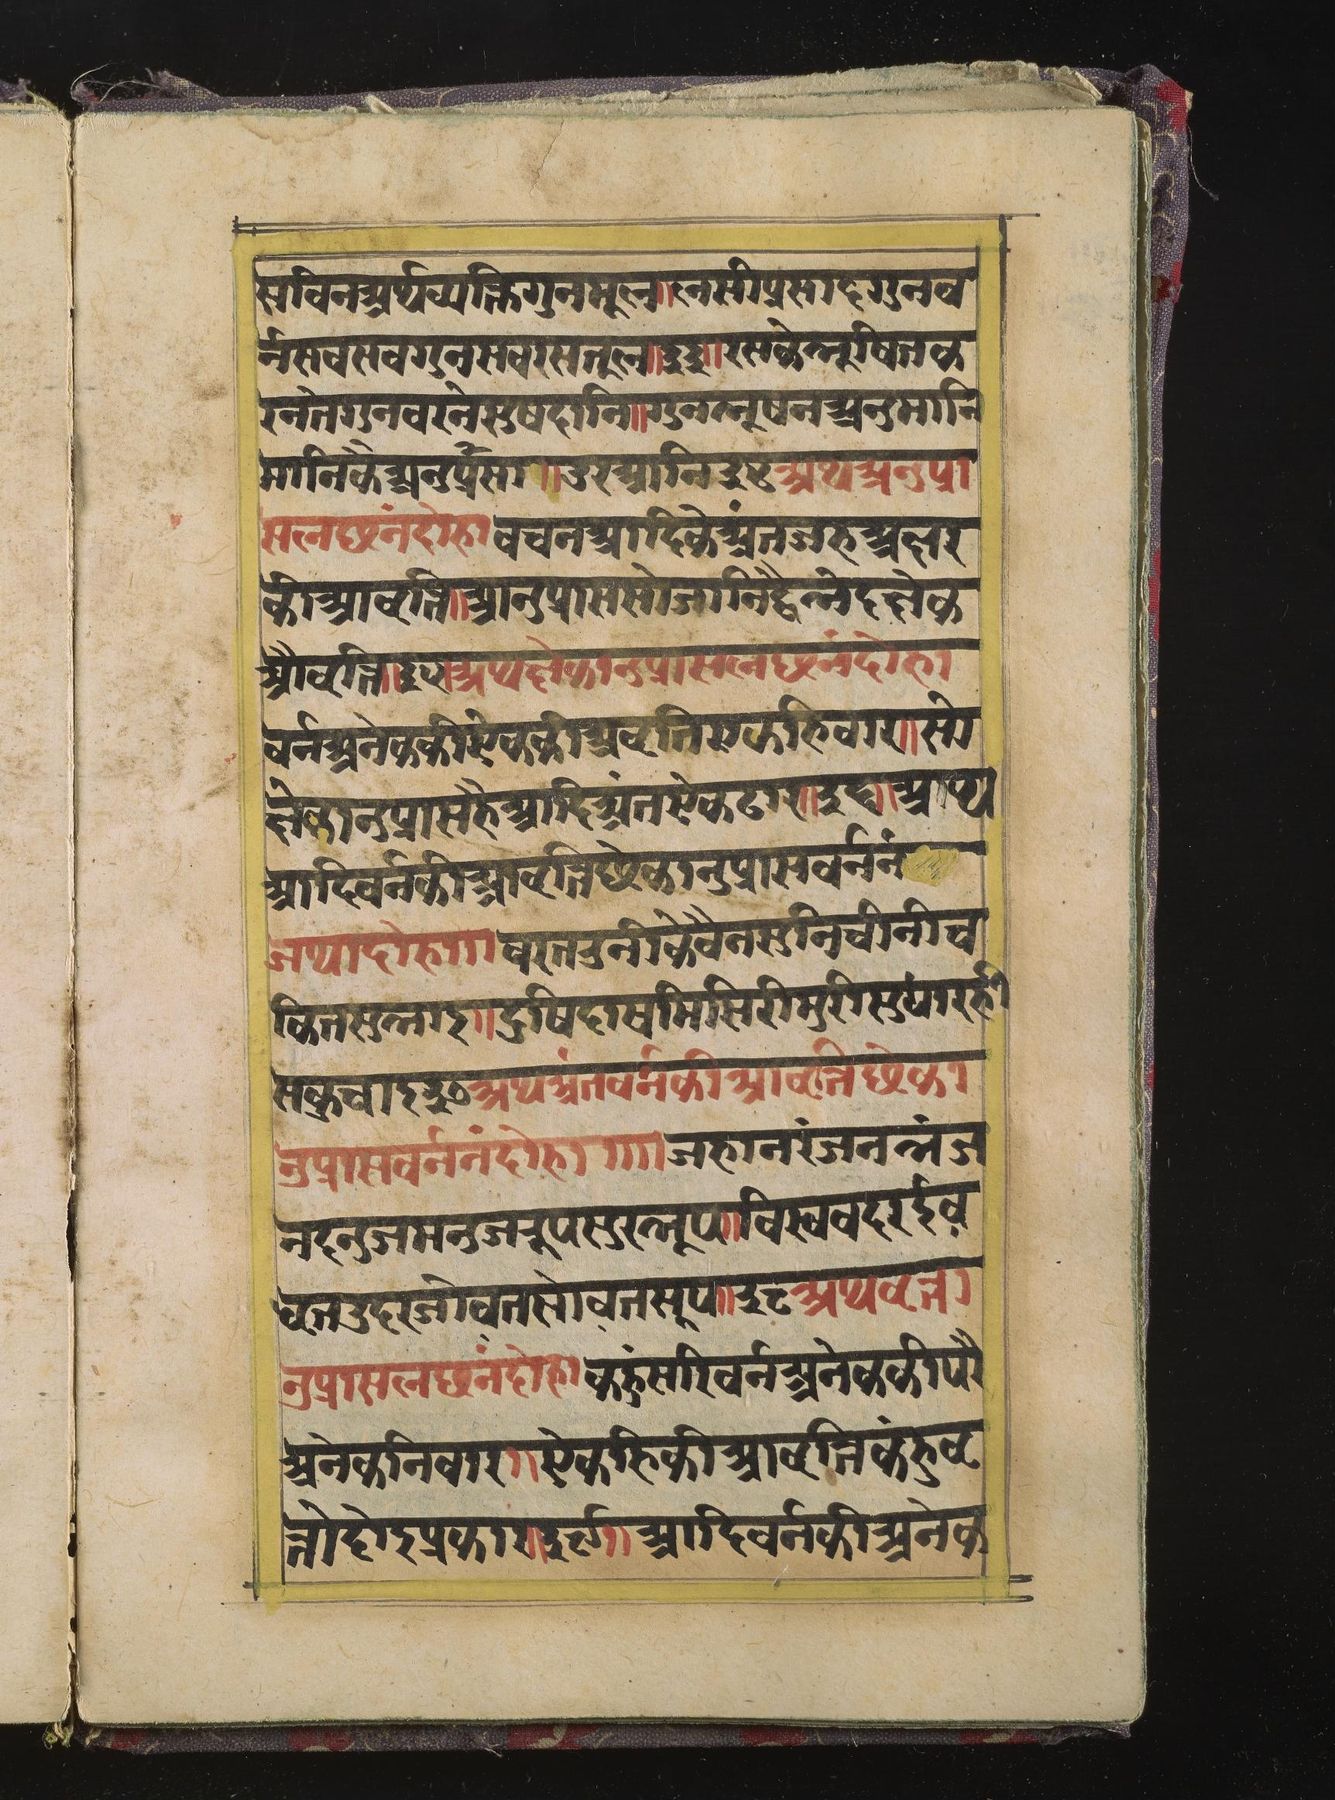 सविनअर्थव्यक्तिगुनमूल॥नसीप्रसादगुनव
र्नसवसवगुनसवरसतूल॥३३॥रसकेभूषितक
रनतेगुनवरनेसुषदानि॥गुनभूषनअनुमानि
मानिकैअनुप्रसा॥उरआनि३४अथअनुप्रा
सलछनंदोहा वचनआदिकेअंतजहअक्षर
कीआवृत्ति॥आनुप्राससोजानिद्वैभेदछेक
औवृत्ति॥३५अथछेकानुप्रासलछनंदोहा
वर्नअनेककीऐककीअवृतिऐकहिवार॥सो
छेकानुप्रासहैआदिअंतऐकढार॥३६॥अथ
आदिवर्नकीआवृत्तिछेकानुप्रासवर्ननं
जथादोहा॥।वरतरुनीकेवैनसुनिचीनीच
कितसुभाइ॥दुषिदाषमिसिरीमुरीसुधारही
सकुचाइ३७अथअंतवर्नकीआवृत्तिछेका
नुप्रासवर्ननंदोहा॥॥जहानरंजनभंज
नदनुजमनुजरूपसुरभूप॥विस्ववदरईव
धृतउदरजोवतसोवतसूप॥३८अथवृत्ता
नुप्रासलछनंदोहा कहुंसरिवर्नअनेककीपरै
अनेकनिवार॥ऐकहिकीआवृत्तिकहुंवृ
त्तोदोइप्रकार॥३९॥आदिवर्नकीअनेक